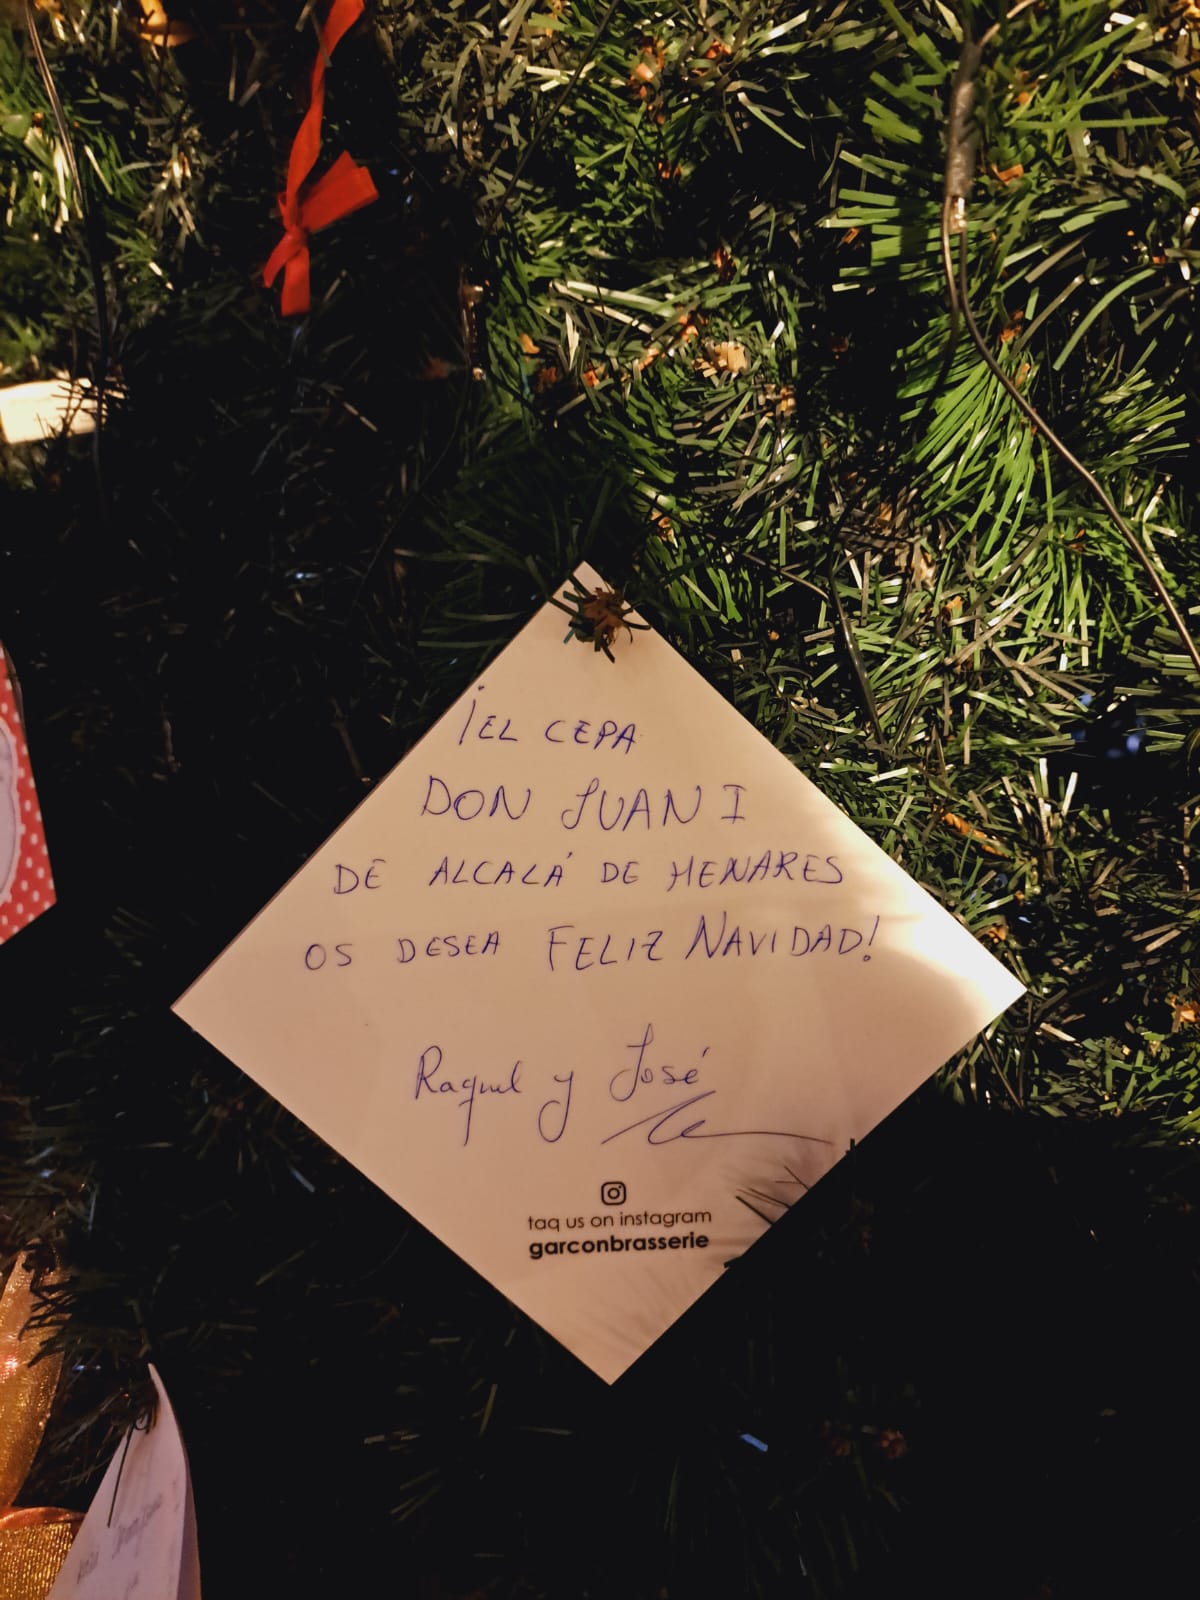 ¡EL CEPA
DON JUAN I
DE ALCALÁ DE HENARES
OS DESEA FELIZ NAVIDAD!
Raquel y José
tag us on instagram
garconbrasserie